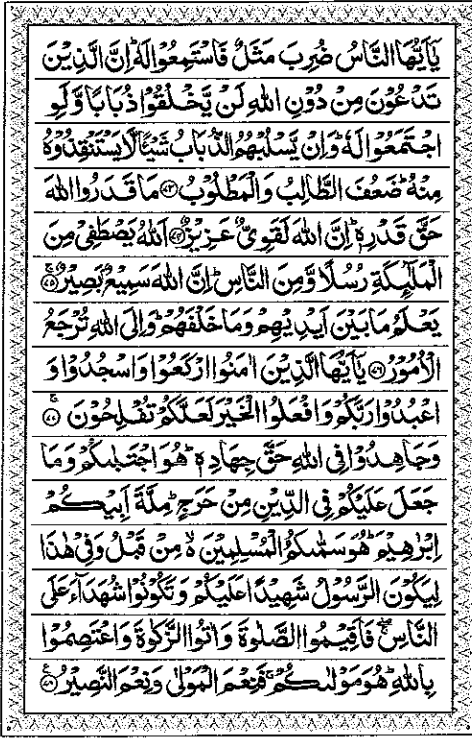 يٰۤاَيُّهَا النَّاسُ ضُرِبَ مَثَلٌ فَاسْتَمِعُوْا لَهٗ ؕ اِنَّ الَّذِيْنَ
تَدْعُوْنَ مِنْ دُوْنِ اللّٰهِ لَنْ يَّخْلُقُوْا ذُبَابًا وَّلَوِ
اجْتَمَعُوْا لَهٗ ؕ وَاِنْ يَّسْلُبْهُمُ الذُّبَابُ شَيْـًٔا لَّا يَسْتَنْقِذُوْهُ
مِنْهُ ؕ ضَعُفَ الطَّالِبُ وَالْمَطْلُوْبُ ﴿۷۳﴾ مَا قَدَرُوا اللّٰهَ
حَقَّ قَدْرِهٖ ؕ اِنَّ اللّٰهَ لَقَوِيٌّ عَزِيْزٌ ﴿۷۴﴾ اَللّٰهُ يَصْطَفِيْ مِنَ
الْمَلٰٓئِكَةِ رُسُلًا وَّمِنَ النَّاسِ ؕ اِنَّ اللّٰهَ سَمِيْعٌۢ بَصِيْرٌ ﴿۷۵﴾ۚ
يَعْلَمُ مَا بَيْنَ اَيْدِيْهِمْ وَمَا خَلْفَهُمْ ؕ وَاِلَى اللّٰهِ تُرْجَعُ
الْاُمُوْرُ ﴿۷۶﴾ يٰۤاَيُّهَا الَّذِيْنَ اٰمَنُوا ارْكَعُوْا وَاسْجُدُوْا وَ
اعْبُدُوْا رَبَّكُمْ وَافْعَلُوا الْخَيْرَ لَعَلَّكُمْ تُفْلِحُوْنَ ﴿۷۷﴾ۚ
وَجَاهِدُوْا فِي اللّٰهِ حَقَّ جِهَادِهٖ ؕ هُوَ اجْتَبٰىكُمْ وَمَا
جَعَلَ عَلَيْكُمْ فِي الدِّيْنِ مِنْ حَرَجٍ ؕ مِلَّةَ اَبِيْكُمْ
اِبْرٰهِيْمَ ؕ هُوَ سَمّٰىكُمُ الْمُسْلِمِيْنَ ۙ مِنْ قَبْلُ وَفِيْ هٰذَا
لِيَكُوْنَ الرَّسُوْلُ شَهِيْدًا عَلَيْكُمْ وَتَكُوْنُوْا شُهَدَآءَ عَلَى
النَّاسِ ۖۚ فَاَقِيْمُوا الصَّلٰوةَ وَاٰتُوا الزَّكٰوةَ وَاعْتَصِمُوْا
بِاللّٰهِ ؕ هُوَ مَوْلٰىكُمْ ۚ فَنِعْمَ الْمَوْلٰى وَنِعْمَ النَّصِيْرُ ﴿۷۸﴾